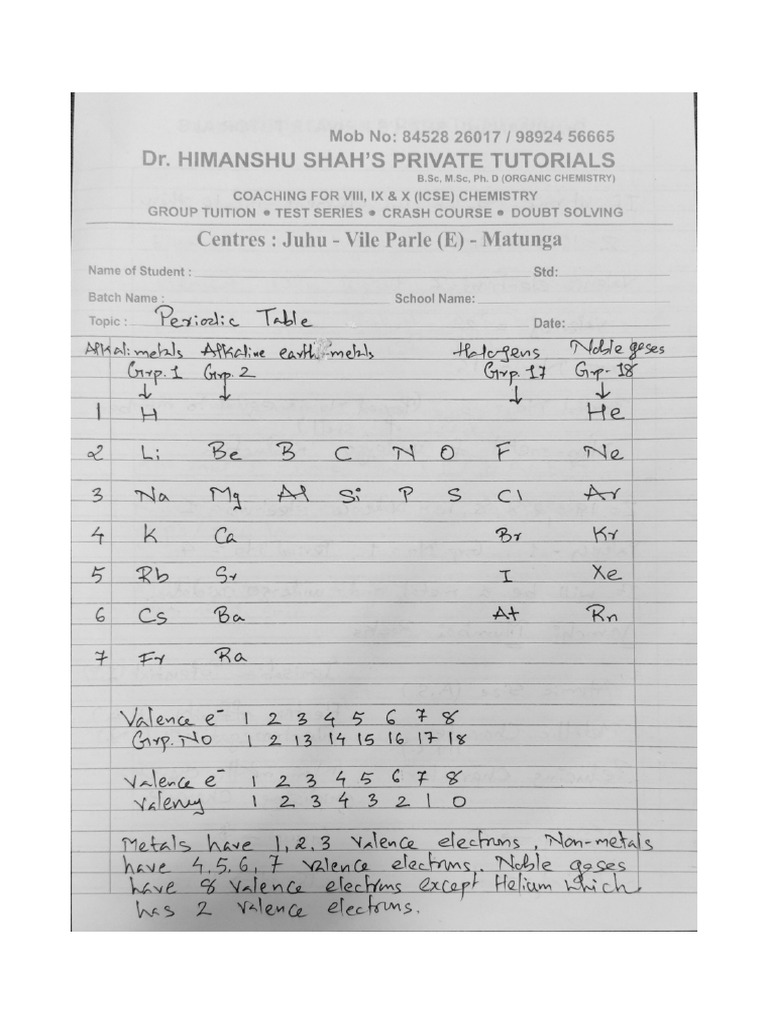 Mob No: 84528 26017 / 98924 56665
Dr. HIMANSHU SHAH'S PRIVATE TUTORIALS
B.Sc, M.Sc, Ph. D (ORGANIC CHEMISTRY)
COACHING FOR VIII, IX & X (ICSE) CHEMISTRY
GROUP TUITION ● TEST SERIES ● CRASH COURSE ● DOUBT SOLVING
Centres : Juhu - Vile Parle (E) - Matunga
Name of Student : Std:
Batch Name : School Name:
Topic : Periodic Table Date:
Alkali metals Alkaline earth metals Halogens Noble gases
Grp. 1 Grp. 2 Grp. 17 Grp- 18
↓ ↓ ↓ ↓
1 H He
2 Li Be B C N O F Ne
3 Na Mg Al Si P S Cl Ar
4 K Ca Br Kr
5 Rb Sr I Xe
6 Cs Ba At Rn
7 Fr Ra
Valence e⁻ 1 2 3 4 5 6 7 8
Grp. No 1 2 13 14 15 16 17 18
Valence e⁻ 1 2 3 4 5 6 7 8
Valency 1 2 3 4 3 2 1 0
Metals have 1, 2, 3 valence electrons, Non-metals
have 4, 5, 6, 7 valence electrons. Noble gases
have 8 valence electrons except Helium which
has 2 valence electrons.